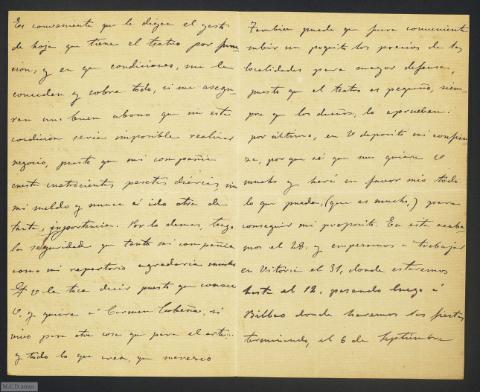 Es conveniente que le digan el gasto
de hoja que tiene el teatro por fun-
ción, y en que condiciones, me la
conceden y cobra todo, si me asegu-
ran un buen abono que sin esta
condición sería imposible realizar
negocio, puesto que mi compañía
cuesta cuatrocientas pesetas diarias, sin
mi sueldo y nunca a ido otra de
tanta importancia. Por lo demas, tengo
la seguridad que tanto mi compañía
como mi repertorio agradaría mucho
V le toca decir puesto que conoce
V. y quiere a Carmen Cobeña, si
vivo para otra cosa que para el arte
y todo lo que crea, que merezco
Tambien puede que fuera conveniente
subir un poquito los precios de las
localidades para mayor defensa,
puesto que el teatro es pequeño, siem-
pre que los dueños, lo aprueban.
por último, en V deposito mi confian-
za, por que sé que me quiere V
mucho y hará en favor mio todo
lo que pueda, (que es mucho,) para
conseguir mi proposito. En esta acaba-
mos el 28. y empezamos a trabajar
en Vitoria el 31, donde estaremos
hasta el 12. pasando luego a
Bilbao donde haremos las fiestas
terminando, el 6 de Septiembre
M.C.D.